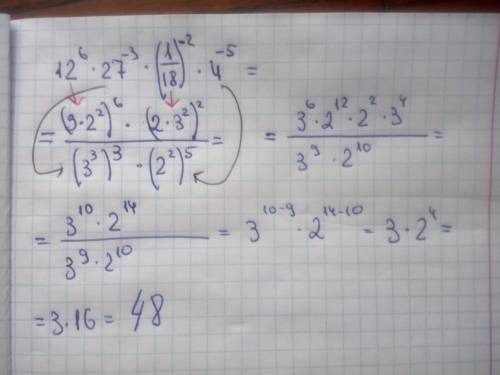 12⁶ · 27⁻³ · (1/18)⁻² · 4⁻⁵ =
= ((3·2²)⁶ · (2·3²)²)/((3³)³ · (2²)⁵) = = (3⁶ · 2¹² · 2² · 3⁴)/(3⁹ · 2¹⁰) =
= (3¹⁰ · 2¹⁴)/(3⁹ · 2¹⁰) = 3¹⁰⁻⁹ · 2¹⁴⁻¹⁰ = 3 · 2⁴ =
= 3 · 16 = 48